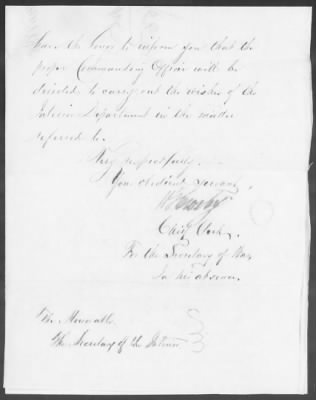 have the honor to inform you that the
proper Commanding Officer will be
directed to carry out the wishes of the
Interior Department in the matter
referred to.
Very respectfully,
Your obedient servant,
Chief Clerk,
For the Secretary of War,
In his absence.
The Honorable
The Secretary of the Interior